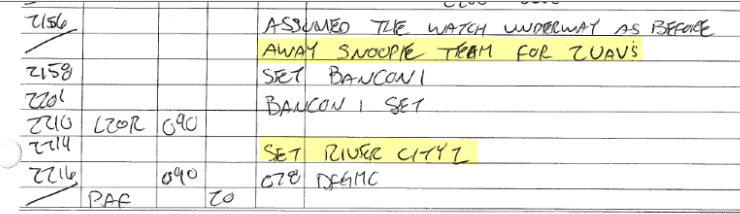 2156 ASSUMED THE WATCH UNDERWAY AS BEFORE
/ AWAY SNOOPIE TEAM FOR 2 UAV'S
2158 SET BANCON 1
2201 BANCON 1 SET
2210 L20R 090
2214 SET RIVER CITY 2
2216 090 078 DFGMC
/ PAF 20